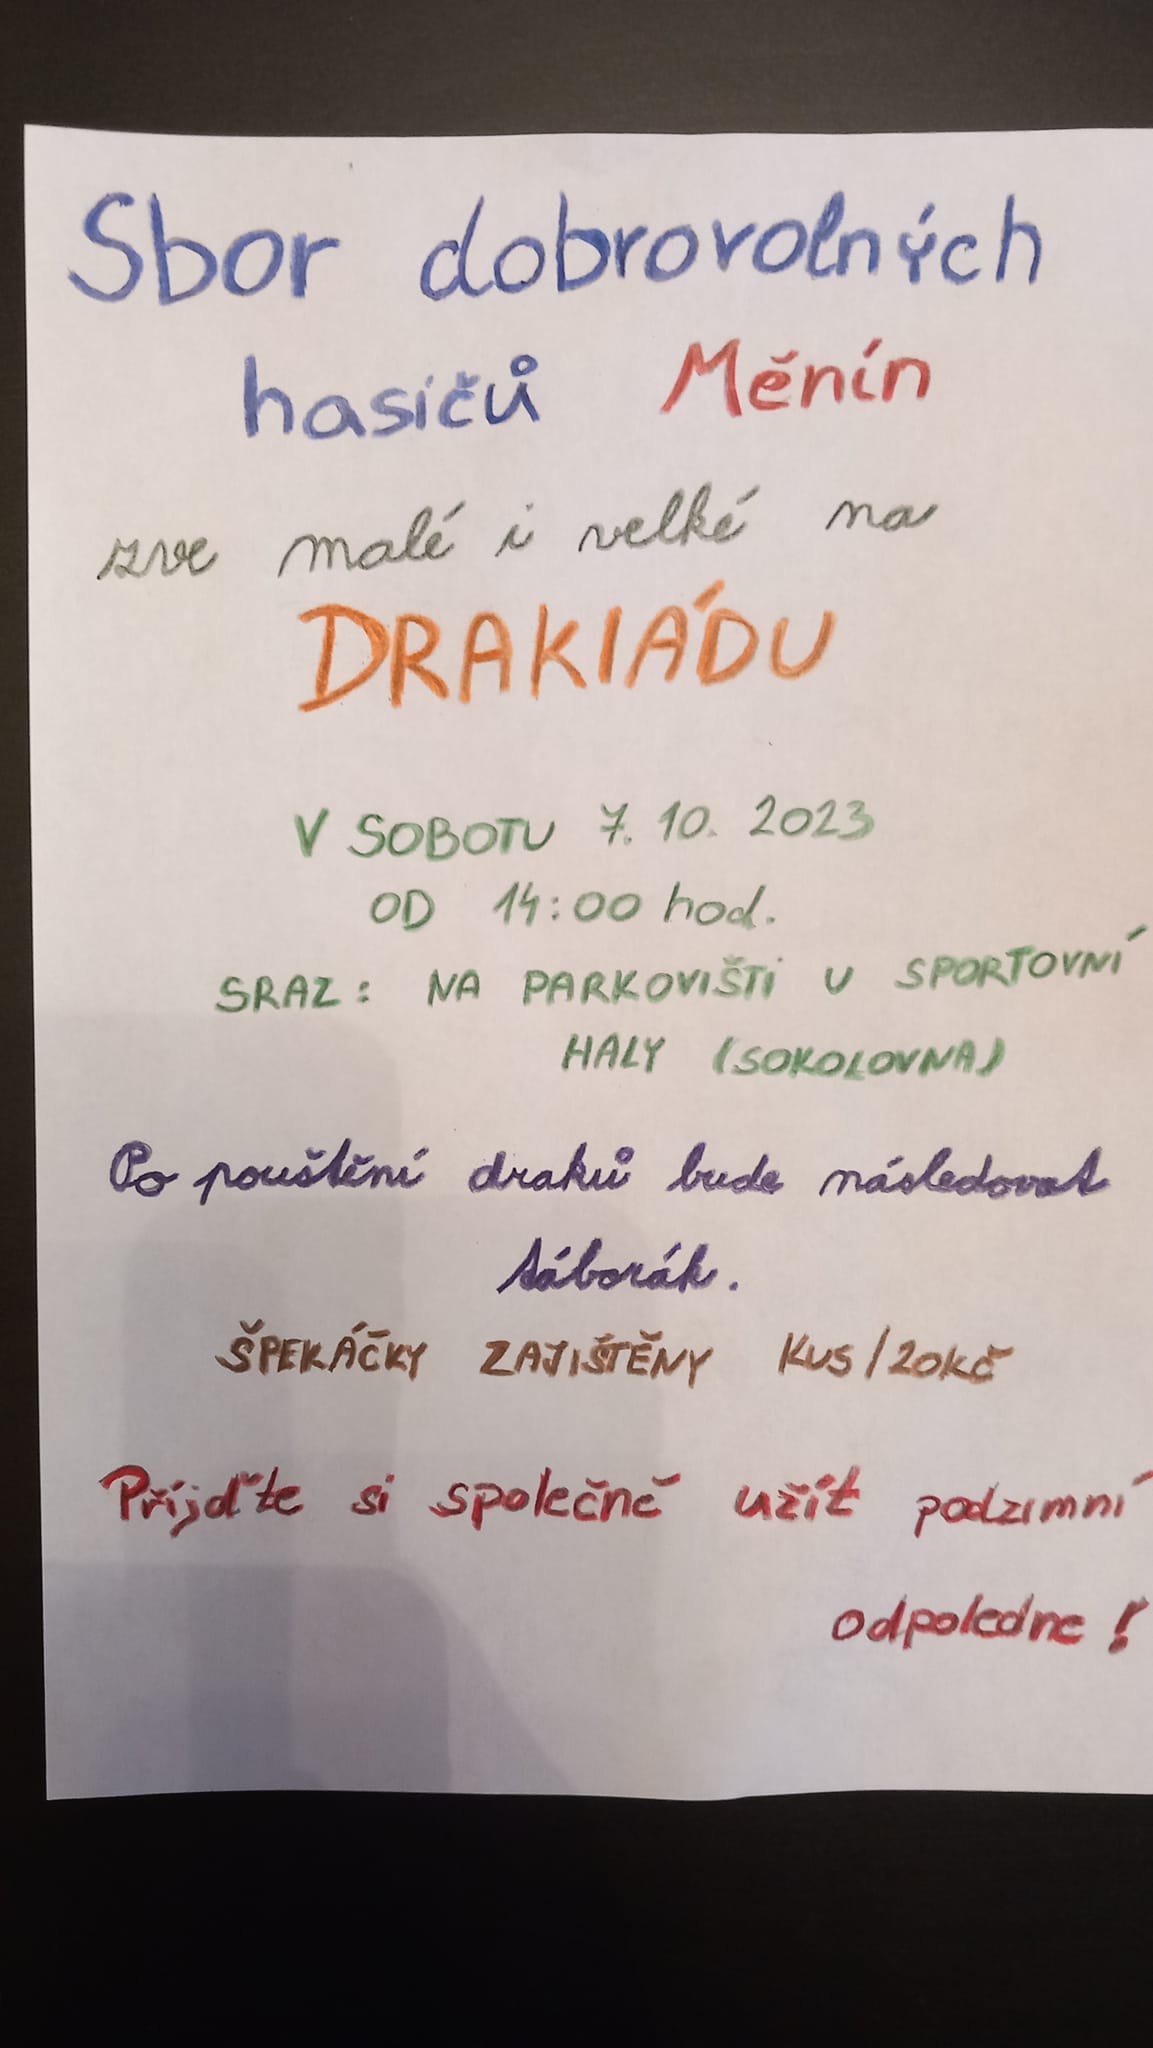 Sbor dobrovolných
hasičů Měnín
zve malé i velké na
DRAKIÁDU
V SOBOTU 7. 10. 2023
OD 14:00 hod.
SRAZ: NA PARKOVIŠTI U SPORTOVNÍ
HALY (SOKOLOVNA)
Po pouštění draků bude následovat
táborák.
ŠPEKÁČKY ZAJIŠTĚNY KUS/20KČ
Příjďte si společně užít podzimní
odpoledne!